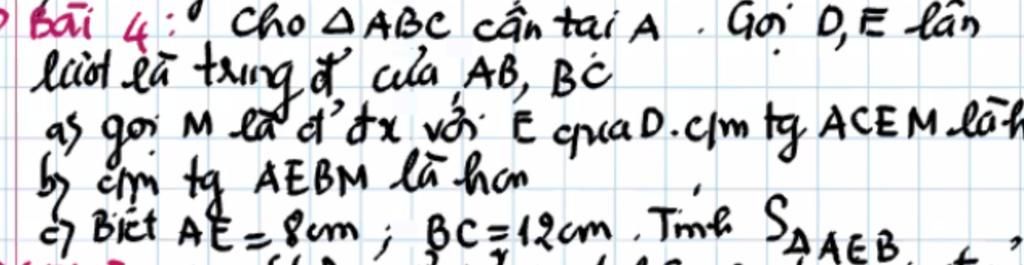 Bài 4: Cho △ABC cân tại A. Gọi D, E lần
lượt là trung đ' của AB, BC
a) gọi M là đ' đx với E qua D. c/m tg ACEM là h
b) c/m tg AEBM là hcn
c) Biết AE = 8cm; BC = 12cm. Tính S△AEB